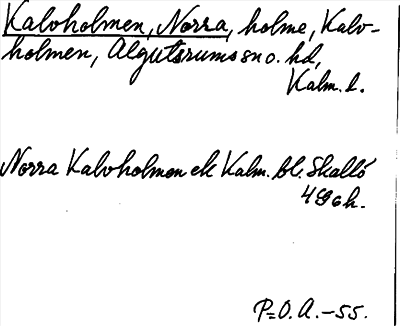 Kalvholmen, Norra, holme, Kalv-
holmen, Algutsrums sn o. hd,
Kalm. l.
Norra Kalvholmen ek Kalm. bl. Skallö
4S9öh.
P=O. A. -55.